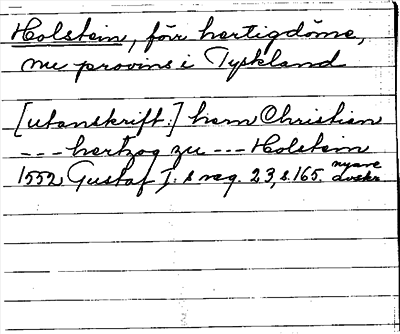 Holstein, förr hertigdöme,
nu provins i Tyskland
[utanskrift:] hern Christian
--- hertzog zu --- Holstein
1552 Gustaf I:s reg. 23, s. 165. nyare
avskr